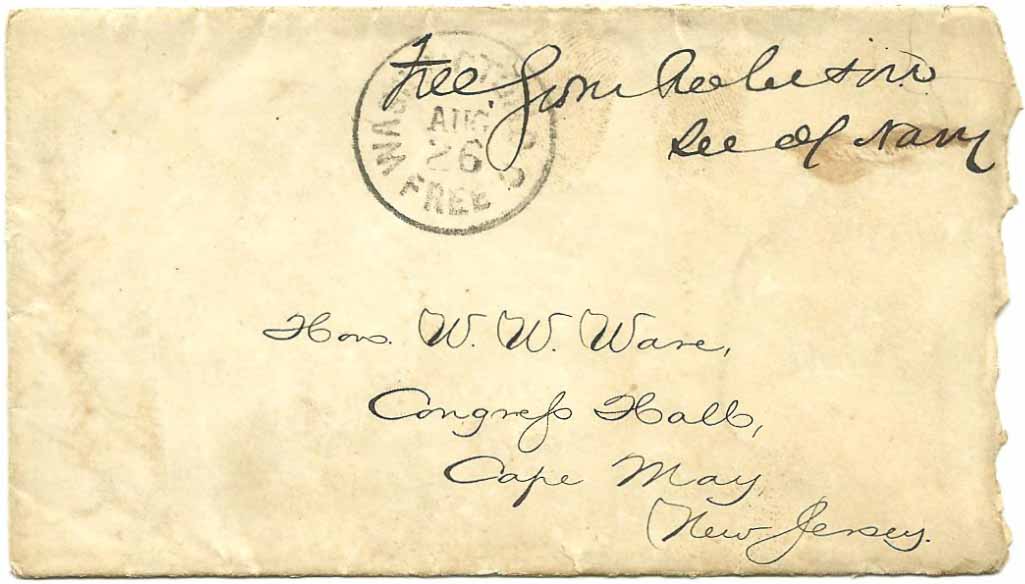 Free Geo M Robeson
Sec of Navy
WASHINGTON D.C.
AUG
26
FREE
Hon. W. W. Ware,
Congreſs Hall,
Cape May,
New Jersey.